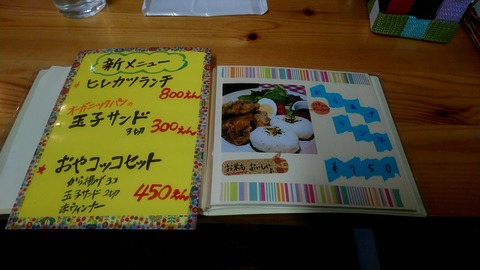 新メニュー
ヒレカツランチ
800えん
オーガニックパンの
玉子サンド
3切 300えん
おやコッコセット
から揚げ 3コ
玉子サンド 2切
赤ウィンナー
450えん
からあげ
ランチ
¥750
お米も、おいしい。